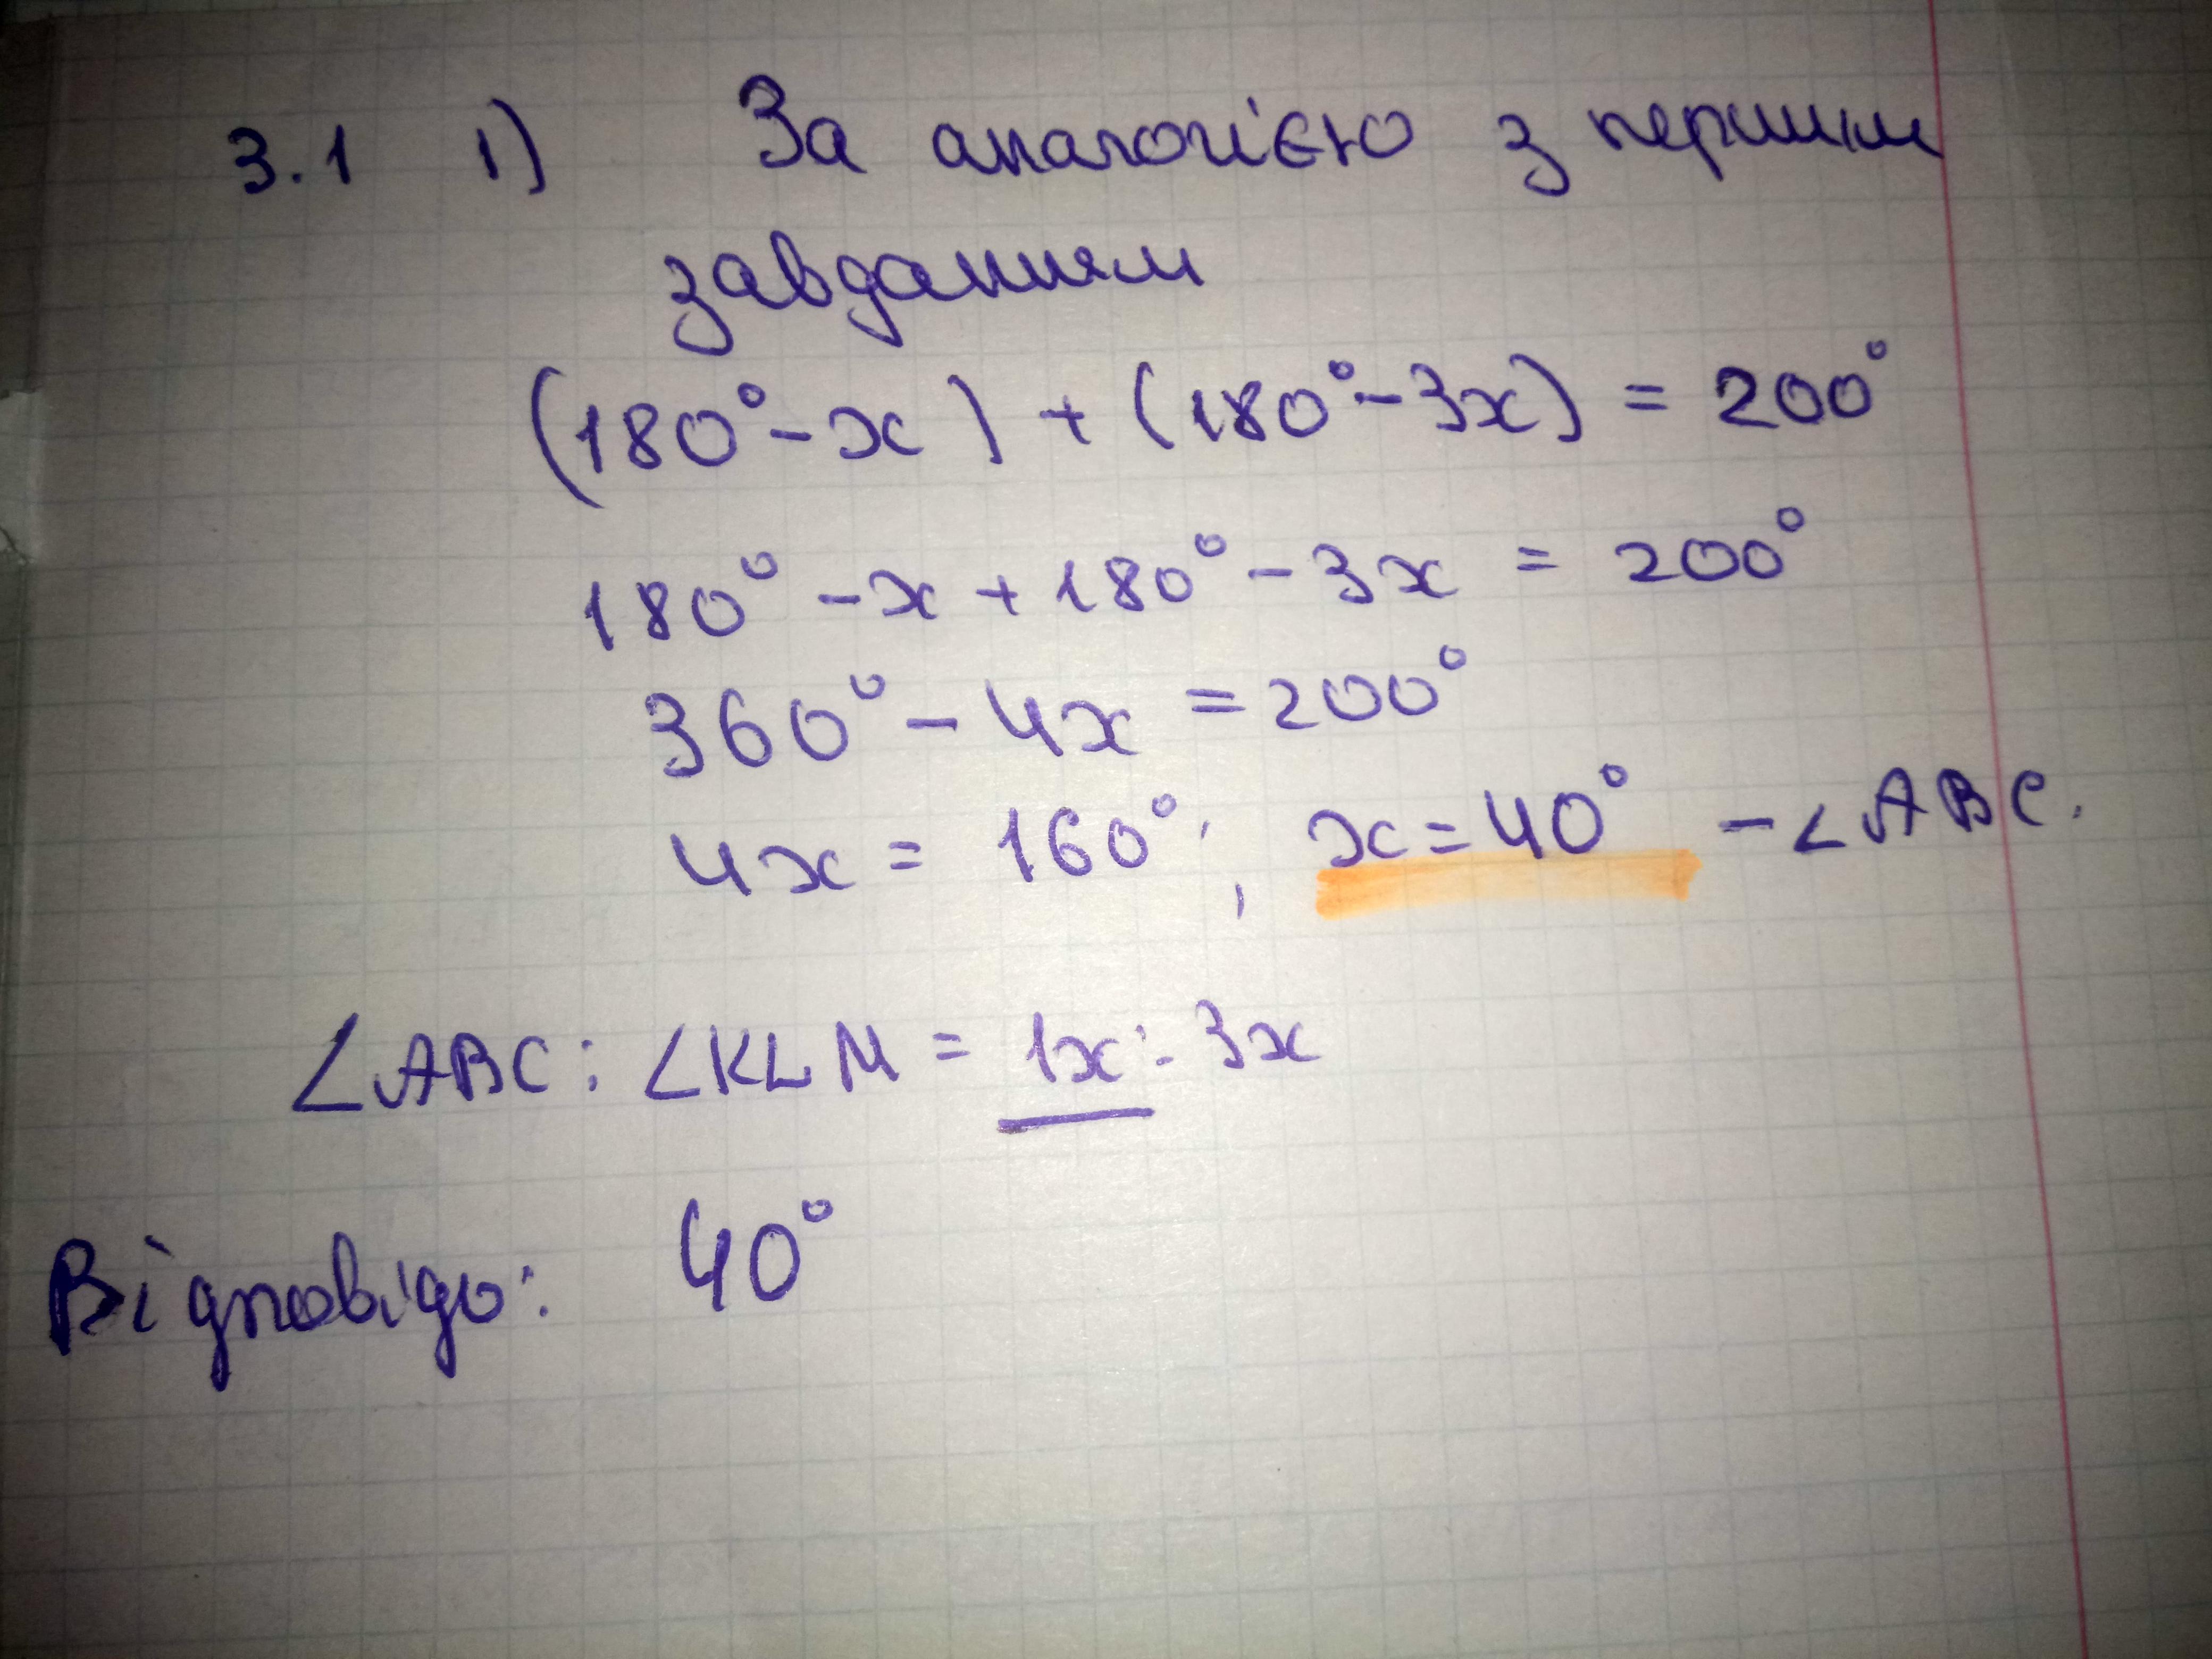 3.1 1) За аналогією з першим
завданням
(180° - x) + (180° - 3x) = 200°
180° - x + 180° - 3x = 200°
360° - 4x = 200°
4x = 160°; x = 40° - ∠ABC.
∠ABC : ∠KLM = 1x : 3x
Відповідь: 40°